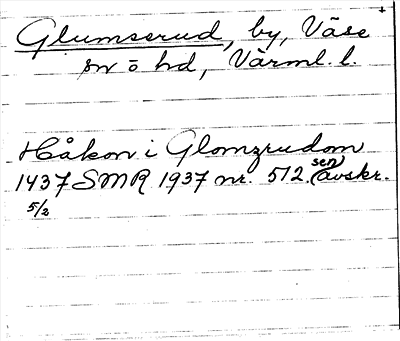 Glumserud, by, Väse
sn o hd, Värml. l.
Håkon i Glomzrudom
1437 SMR 1937 nr. 512. (sen avskr.
5/2